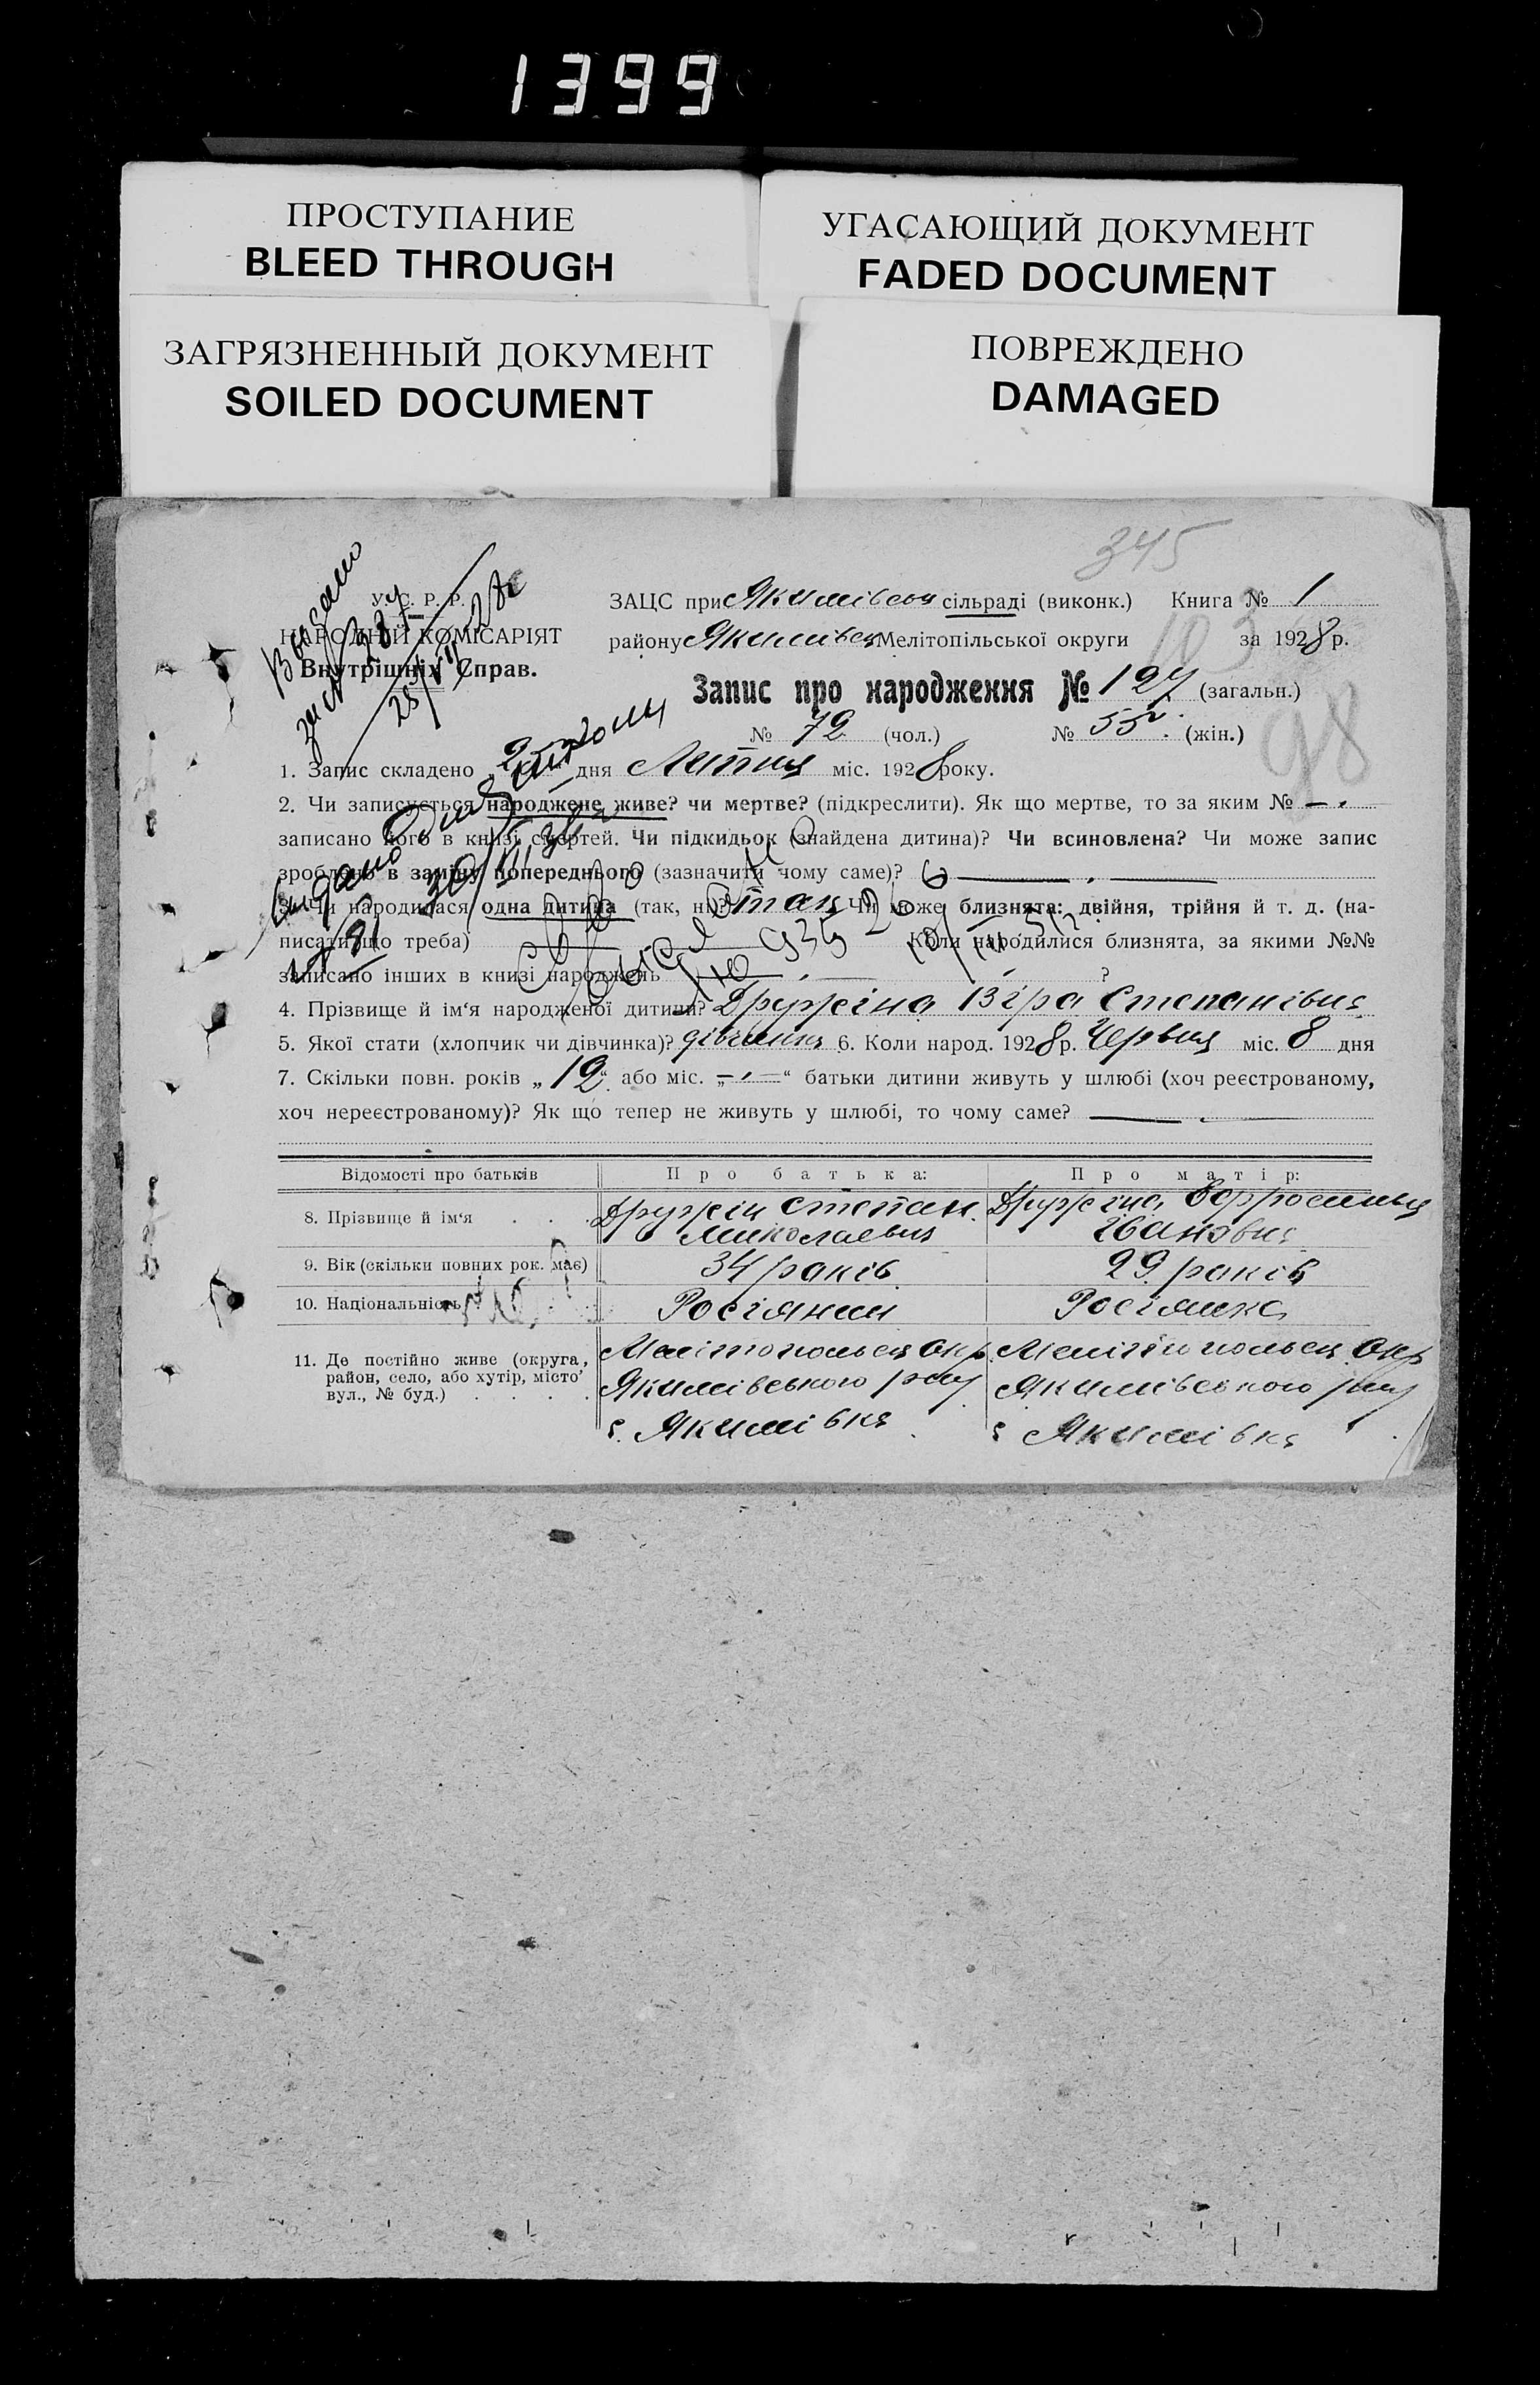 1399
ПРОСТУПАНИЕ
BLEED THROUGH
УГАСАЮЩИЙ ДОКУМЕНТ
FADED DOCUMENT
ЗАГРЯЗНЕННЫЙ ДОКУМЕНТ
SOILED DOCUMENT
ПОВРЕЖДЕНО
DAMAGED
345
У. С. Р. Р.
НАРОДНИЙ КОМІСАРІЯТ
Внутрішніх Справ.
Выдано
ЗАЦС при Якимівськ сільраді (виконк.) Книга № 1
району Якимівськ Мелітопільської округи за 1928 р.
103
Запис про народження № 127 (загальн.)
№ 72 (чол.) № 55 (жін.)
98
1. Запис складено „2“ дня Липня міс. 1928 року.
2. Чи записується народжене живе? чи мертве? (підкреслити). Як що мертве, то за яким № —
записано його в книзі смертей. Чи підкидьок (знайдена дитина)? Чи всиновлена? Чи може запис
зроблено в заміну попереднього (зазначити чому саме)?
3. Чи народилася одна дитина (так, ні)? так Чи може близнята: двійня, трійня й т. д. (на-
писати що треба) Коли народилися близнята, за якими №№
записано інших в книзі народжень ?
4. Прізвище й ім‘я народженої дитини? Дружіна Віра Степанівна
5. Якої стати (хлопчик чи дівчинка)? дівчинка 6. Коли народ. 1928 р. Червня міс. 8 дня
7. Скільки повн. років „12“ або міс. „—“ батьки дитини живуть у шлюбі (хоч реєстрованому,
хоч нереєстрованому)? Як що тепер не живуть у шлюбі, то чому саме?
Відомості про батьків Про батька: Про матір:
8. Прізвище й ім‘я . . . Дружін Степан Дружіна Єфросинья
Миколаевич Ивановна
9. Вік (скільки повних рок. має) 34 років 29 років
10. Національність Росіянин Росіянка
11. Де постійно живе (округа, Мелітопольськ окр. Мелітопольськ окр
район, село, або хутір, місто Якимівського р-ну Якимівського р-ну
вул., № буд.) . . . .
с. Якимівка с Якимівка